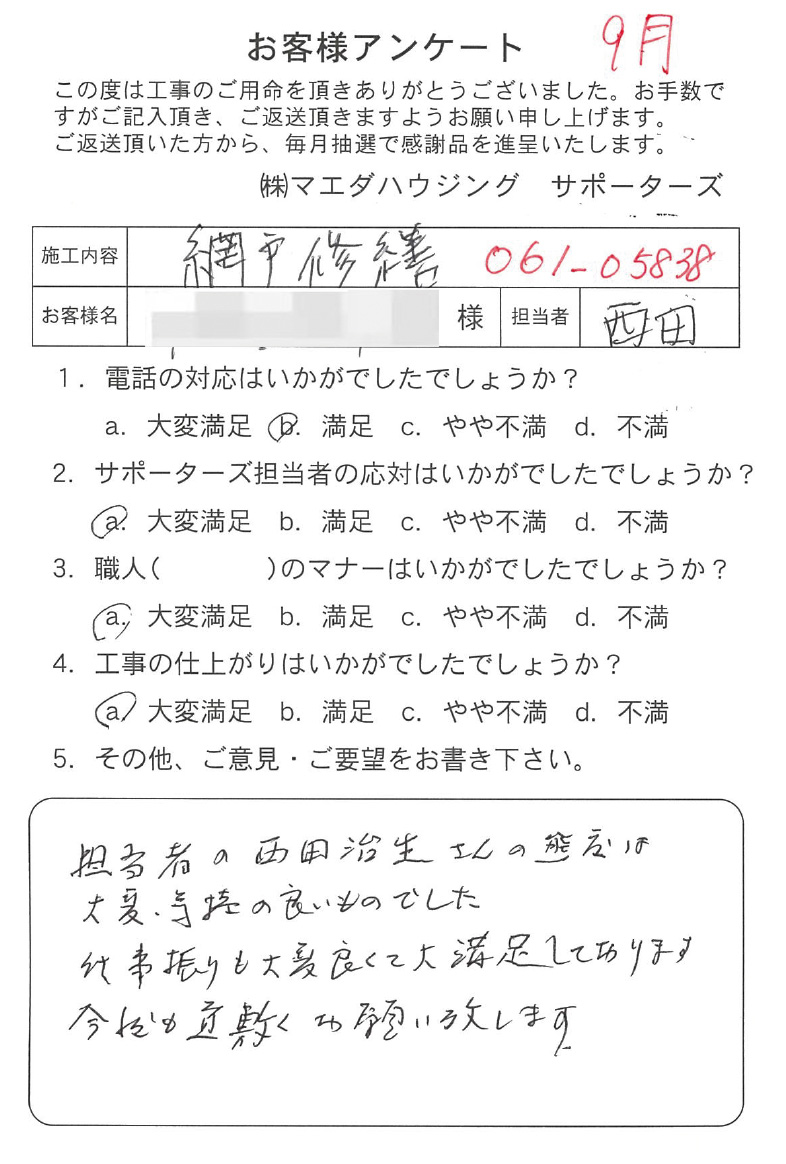 お客様アンケート 9月
この度は工事のご用命を頂きありがとうございました。お手数で
すがご記入頂き、ご返送頂きますようお願い申し上げます。
ご返送頂いた方から、毎月抽選で感謝品を進呈いたします。
㈱マエダハウジング サポーターズ
施工内容 網戸修繕 061-05838
お客様名 様 担当者 西田
1. 電話の対応はいかがでしたでしょうか？
a. 大変満足 b. 満足 c. やや不満 d. 不満
2. サポーターズ担当者の応対はいかがでしたでしょうか？
a. 大変満足 b. 満足 c. やや不満 d. 不満
3. 職人( )のマナーはいかがでしたでしょうか？
a. 大変満足 b. 満足 c. やや不満 d. 不満
4. 工事の仕上がりはいかがでしたでしょうか？
a. 大変満足 b. 満足 c. やや不満 d. 不満
5. その他、ご意見・ご要望をお書き下さい。
担当者の西田治生さんの態度は
大変気持の良いものでした
仕事振りも大変良くて大満足しております
今后も宜敷くお願い致します